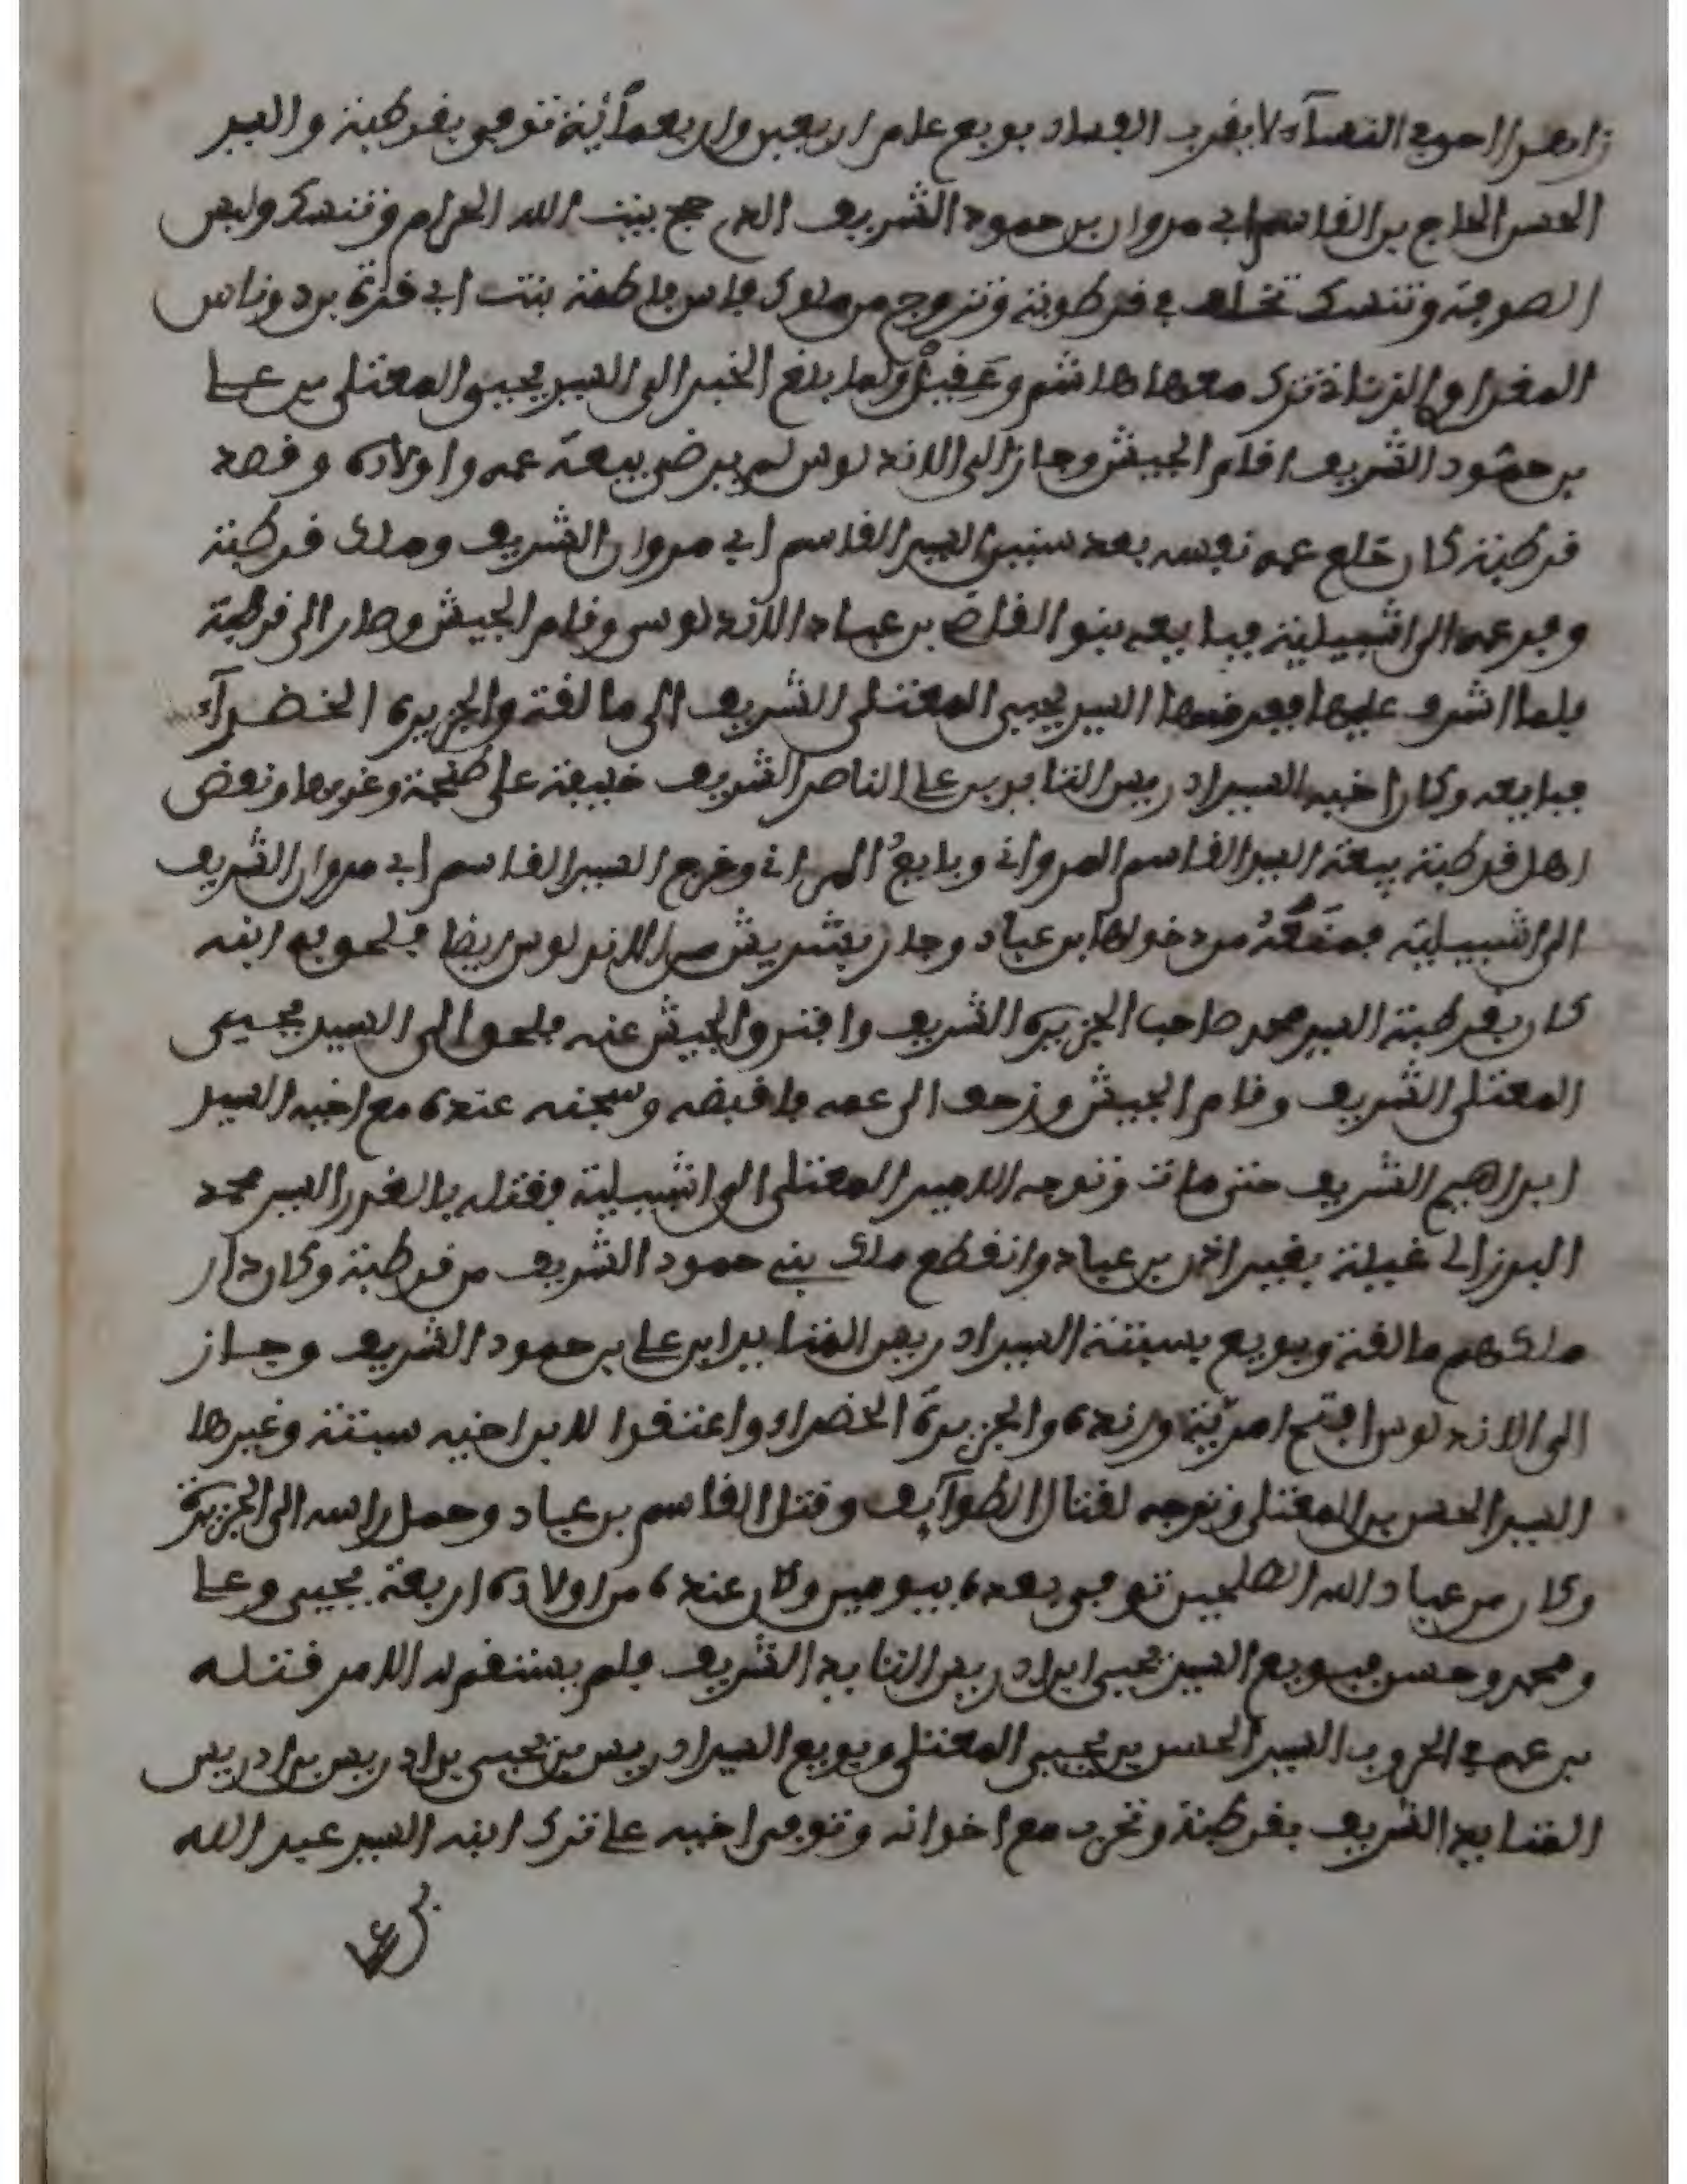 زاهدا احوي النساء لا يقرب الفساد بويع عام اربعين واربعمائة توفي بقرطبة والسيد
الحسن الحاج بن القاسم ابي مروان بن حمود الشريف الذي حج بيت الله الحرام وتنسك ولبس
الصوفة وتنسك تخلف في قرطوبة وتزوج من ملوك فاس فاطمة بنت ابي قرة بن دوناس
المغراوي الزناتة ترك معها هاشم وعقيل ولما بلغ الخبر الى السيد يحيى المعتلي بن علي
بن حمود الشريف اقام الجيش وجاز الى الاندلوس لم يرض ببيعة عمه واولاده وقصد
قرطبة كان خلع عمه نفسه بعد سنين السيد القاسم ابي مروان الشريف وملك قرطبة
وفر عمه الى اشبيلية فبايعه بنو القاضي بن عباد الاندلوس وقام الجيش وصار الى قرطبة
فلما اشرف عليها ففر منها السيد يحيى المعتلي الشريف الى مالقة والجزيرة الخضرآء
فبايعه وكان اخيه السيد ادريس التايد بن علي الناصر الشريف خليفة على طنجة وغيرها ونقض
اهل قرطبة بيعة السيد القاسم المرواني وبايع المرواني وخرج السيد القاسم ابي مروان الشريف
الى اشبيلية فمنعه من دخولها بن عباد وجاز بشريش من الاندلوس ايضا فلحق به ابنه
كان بقرطبة السيد محمد صاحب الجزيرة الشريف وافترق الجيش عنه فلحق الى السيد يحيى
المعتلي الشريف وقام الجيش وزحف الى عمه فاقبضه وسجنه عنده مع اخيه السيد
ابراهيم الشريف حتى مات وتوجه الامير المعتلي الى اشبيلية فقتله بالغدر السيد محمد
البرزالي غيلة بغير اذن بن عباد وانقطع ملك بني حمود الشريف من قرطبة وكان دار
ملكهم مالقة وبويع بسبتة السيد ادريس المتايد ابن علي بن حمود الشريف وجاز
الى الاندلوس افتح امرية ورندة والجزيرة الخضراء واعتقوا لابن اخيه سبتة وغيرها
السيد الحسن بن المعتلي وتوجه لقتال الطوآيف وقتل القاسم بن عباد وحمل راسه الى الجزيرة
وكان من عباد الله الصلحين توفي بعده بيومين وكان عنده من اولاده اربعة يحيى وعلي
ومحمد وحسن فبويع السيد يحيى ابن ادريس التايد الشريف فلم يستقم له الامر فتله
بن عمه في الحروب السيد الحسن بن يحيى المعتلي وبويع السيد ادريس بن يحيى بن ادريس بن ادريس
المتايد الشريف بقرطبة وتحرب مع اخوانه وتوفي اخيه علي ترك ابنه السيد عبد الله